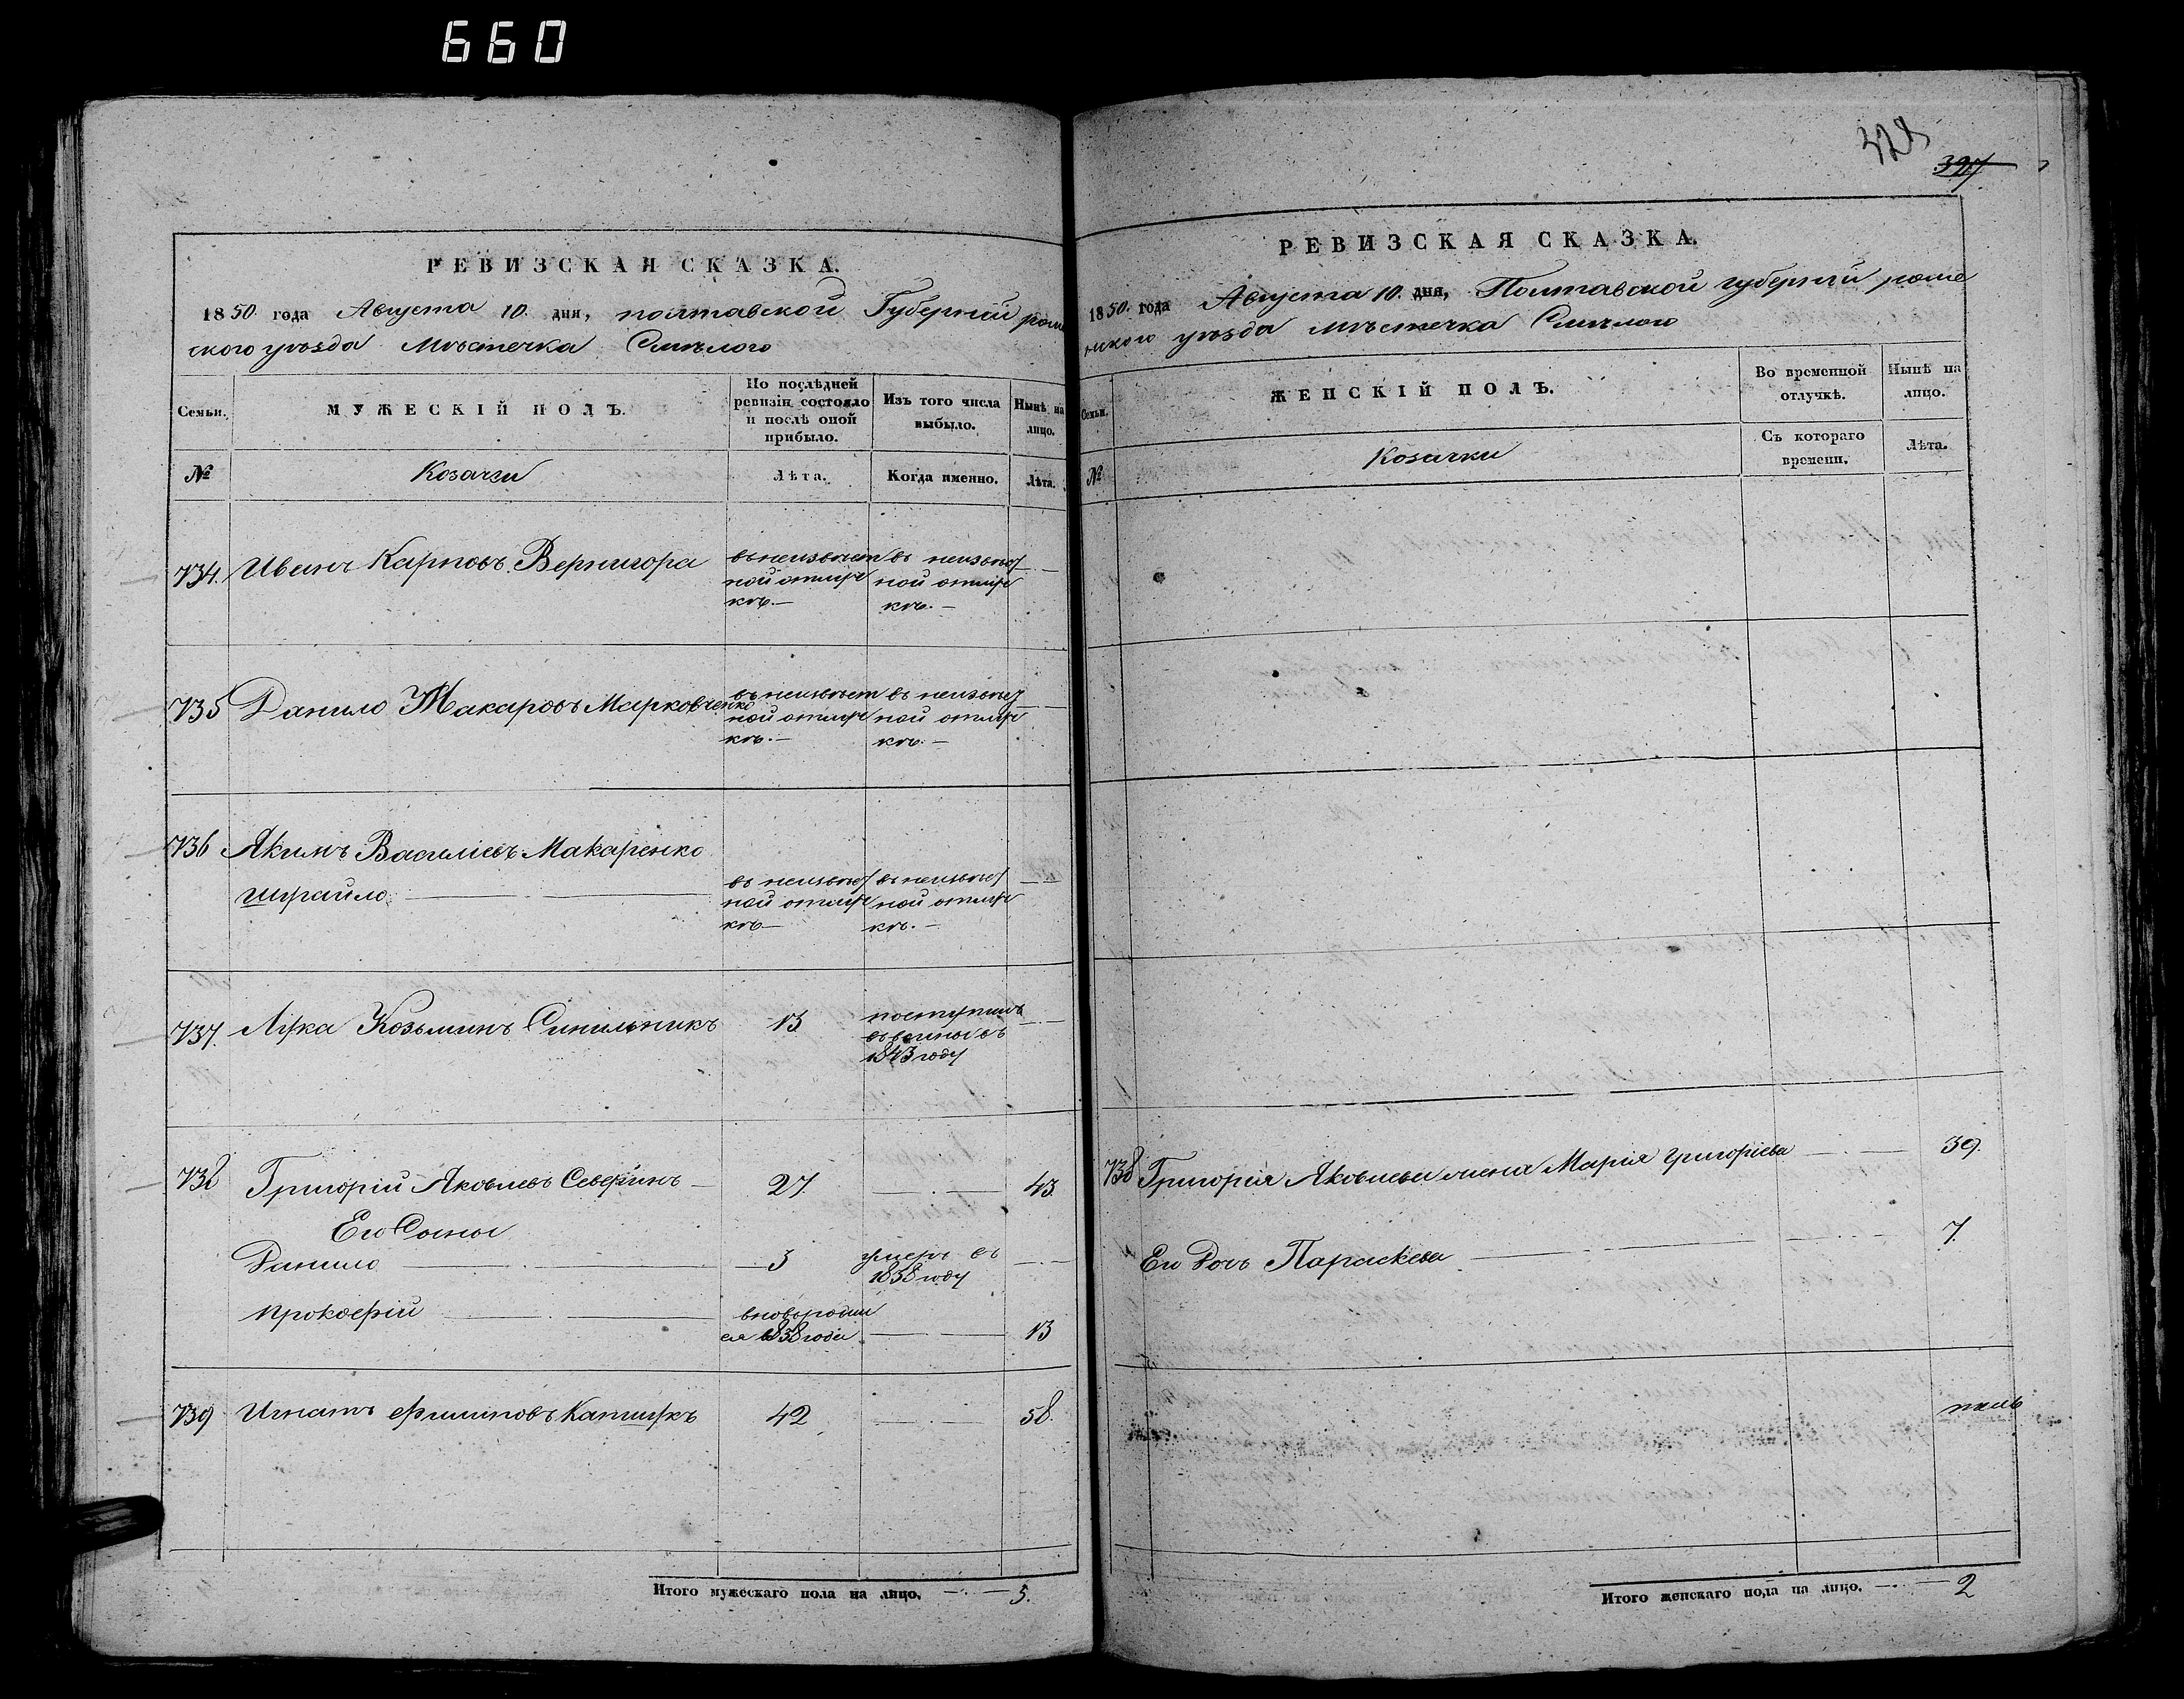 660
РЕВИЗСКАЯ СКАЗКА.
1850. года Августа 10. дня, полтавской Губерніи роме
ского уѣзда Мѣстечка Смѣлого
Семьи.
МУЖЕСКІЙ ПОЛЪ.
По послѣдней ревизіи состояло и послѣ оной прибыло.
Изъ того числа выбыло.
Нынѣ на лицо.
№
Козачки
Лѣта.
Когда именно.
Лѣта.
734. Иванъ Карповъ Вернигора
въ неизвѣстной отлучкѣ.—
въ неизвѣс
ной отлуч
кѣ.—
735 Данило Макаровъ Марковченко
въ неизвѣст
ной отлуч
кѣ.—
въ неизвѣс
ной отлуч
кѣ.—
736 Якимъ Василіевъ Макаренко
Шрайло
въ неизвѣс
ной отлуч
кѣ—
въ неизвѣс
ной отлуч
кѣ.—
737. Лука Козьминъ Синильникъ 13
поступилъ
въ
1843 году
738 Григорій Яковлевъ Северинъ — 27. 43.
Его Сыны
Данило 3 умеръ въ
1838 году
Прокофій вновьродил
ся 1838 года 13
739 Игнатъ Филиповъ Капшукъ 42 58.
Итого мужескаго пола на лицо. 3.
328
327
РЕВИЗСКАЯ СКАЗКА.
1850. года Августа 10. дня, Полтавской губерніи роме
нского уѣзда мѣстечка Смѣлого
Семьи.
ЖЕНСКІЙ ПОЛЪ.
Во временной отлучкѣ.
Нынѣ на лицо.
№
Козачки
Съ котораго времени.
Лѣта.
738 Григорія Яковлева жена Марія Григоріева 39.
Его Дочь Параскева 7.
Итого женскаго пола на лицо. 2